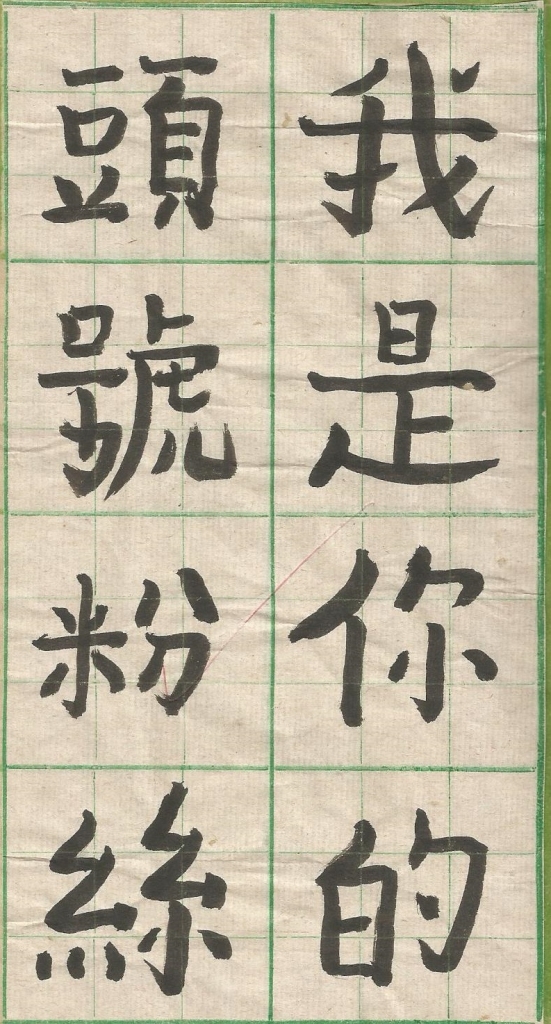 我是你的
頭號粉絲